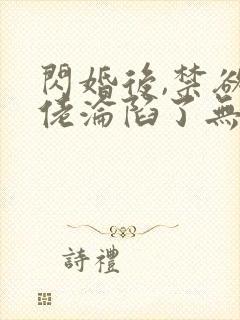 閃婚後,禁欲
佬淪陷了無
詩禮